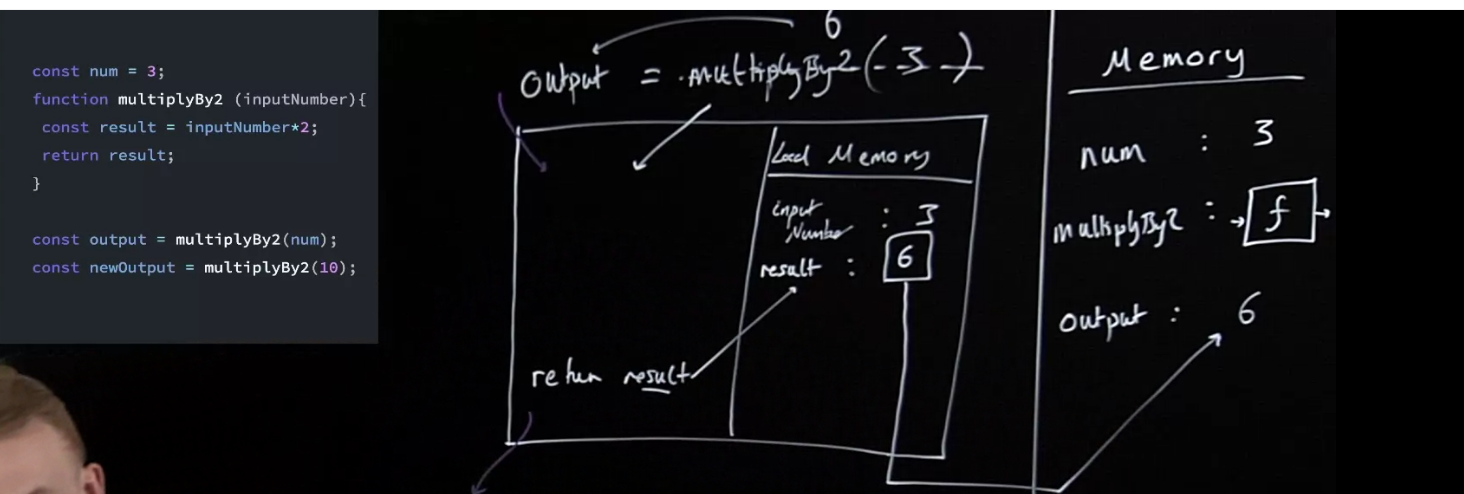 const num = 3;
function multiplyBy2 (inputNumber){
const result = inputNumber*2;
return result;
}
const output = multiplyBy2(num);
const newOutput = multiplyBy2(10);
6
output = multiplyBy2(3)
Local Memory
input
Number : 3
result : 6
return result
Memory
num : 3
multiplyBy2 : f
output : 6